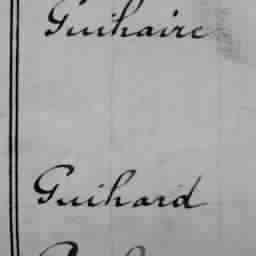 Guihaire
Guihard